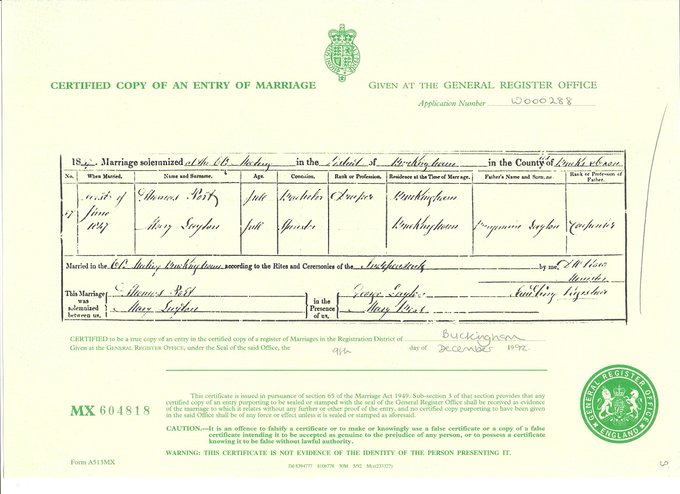 CERTIFIED COPY OF AN ENTRY OF MARRIAGE
GIVEN AT THE GENERAL REGISTER OFFICE
Application Number W000288
18 Marriage solemnized at the in the District of Buckingham in the County of Bucks & Oxon
No. When Married. Name and Surname. Age. Condition. Rank or Profession. Residence at the Time of Marriage. Father's Name and Surname Rank or Profession of Father.
of June 1847 Thomas Full Bachelor Draper Buckingham
Mary Layton Full Spinster Buckingham Benjamin Layton Carpenter
Married in the Meeting Buckingham according to the Rites and Ceremonies of the Independents by me,
Minister
This Marriage was solemnized between us, Thomas
Mary Layton
in the Presence of us, George
Mary
Registrar
CERTIFIED to be a true copy of an entry in the certified copy of a register of Marriages in the Registration District of Buckingham
Given at the GENERAL REGISTER OFFICE, under the Seal of the said Office, the 9th day of December 1992
MX 604818
This certificate is issued in pursuance of section 65 of the Marriage Act 1949. Sub-section 3 of that section provides that any
certified copy of an entry purporting to be sealed or stamped with the seal of the General Register Office shall be received as evidence
of the marriage to which it relates without any further or other proof of the entry, and no certified copy purporting to have been given
in the said Office shall be of any force or effect unless it is sealed or stamped as aforesaid.
CAUTION.—It is an offence to falsify a certificate or to make or knowingly use a false certificate or a copy of a false
certificate intending it to be accepted as genuine to the prejudice of any person, or to possess a certificate
knowing it to be false without lawful authority.
WARNING: THIS CERTIFICATE IS NOT EVIDENCE OF THE IDENTITY OF THE PERSON PRESENTING IT.
GENERAL REGISTER OFFICE
ENGLAND
Form A513MX